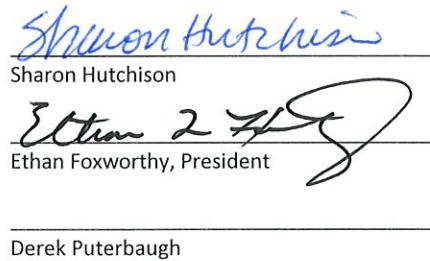 Sharon Hutchison
Sharon Hutchison
Ethan Foxworthy, President
Derek Puterbaugh